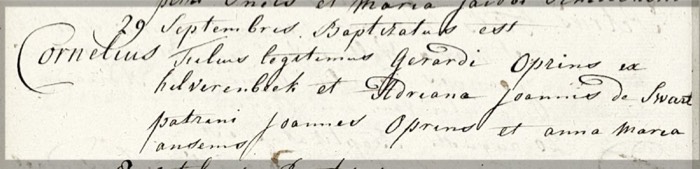 et Maria Jacobi
29 Septembris Baptizatus est
Cornelius Filius legitimus Gerardi Oprins ex
hilverenbeek et Adriana Joannis de Swart
patrini Joannes Oprins et anna Maria
ansems